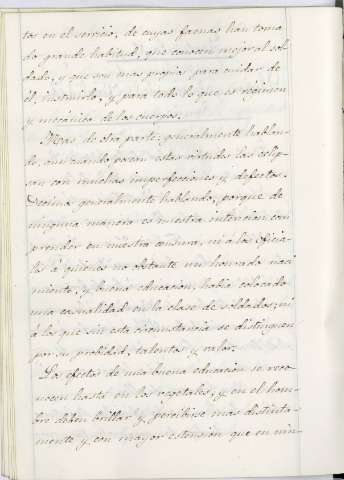 tos en el servicio, de cuyas faenas han toma
do grande habitud, que conocen mejor al sol
dado, y que son mas propios para cuidar de
él, instruirlo, y para todo lo que es regimen
y mecánica de los cuerpos.
Mas de otra parte, generalmente hablan
do, aun cuando poseen estas virtudes las eclip
san con muchas imperfecciones y defectos.
Decimos generalmente hablando, porque de
ninguna manera es nuestra intencion com
prender en nuestra censura, ni á los oficia
les á quienes no obstante un honrado naci
miento, y buena educacion, habia colocado
una casualidad en la clase de soldados; ni
á los que sin esta circunstancia se distinguen
por su probidad, talentos y valor.
Los efectos de una buena educacion se reco
nocen hasta en los vegetales, y en el hom
bre deben brillar y percibirse mas distinta
mente y con mayor estension que en nin